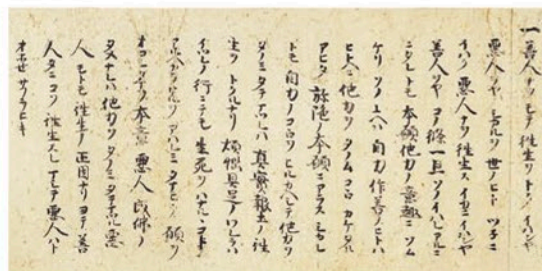 一善人ナヲモテ往生ヲトク イハンヤ
悪人ヲヤ シカルヲ世ノヒトツネニ
イハク悪人ナヲ往生スイカニイハンヤ
善人ヲヤ コノ條一旦ソノイハレアルニ
ニタレトモ本願他力ノ意趣ニソム
ケリソノユヘハ自力作善ノヒトハ
ヒトヘニ他力ヲタノムコヽロカケタル
アヒタ弥陀ノ本願ニアラスシカレ
トモ自力ノコヽロヲヒルカヘシテ他力ヲ
タノミタテマツレハ真實報土ノ往
生ヲトクルナリ煩惱具足ノワレラハ
イツレノ行ニテモ生死ヲハナルヽコト
アルヘカラサルヲアハレミタマヒテ願ヲ
オコシタマフ本意悪人成佛ノ
タメナレハ他力ヲタノミタテマツル悪
人モトモ往生ノ正因ナリヨテ善
人タニコソ往生スレマシテ悪人ハト
オホセサフラヒキ